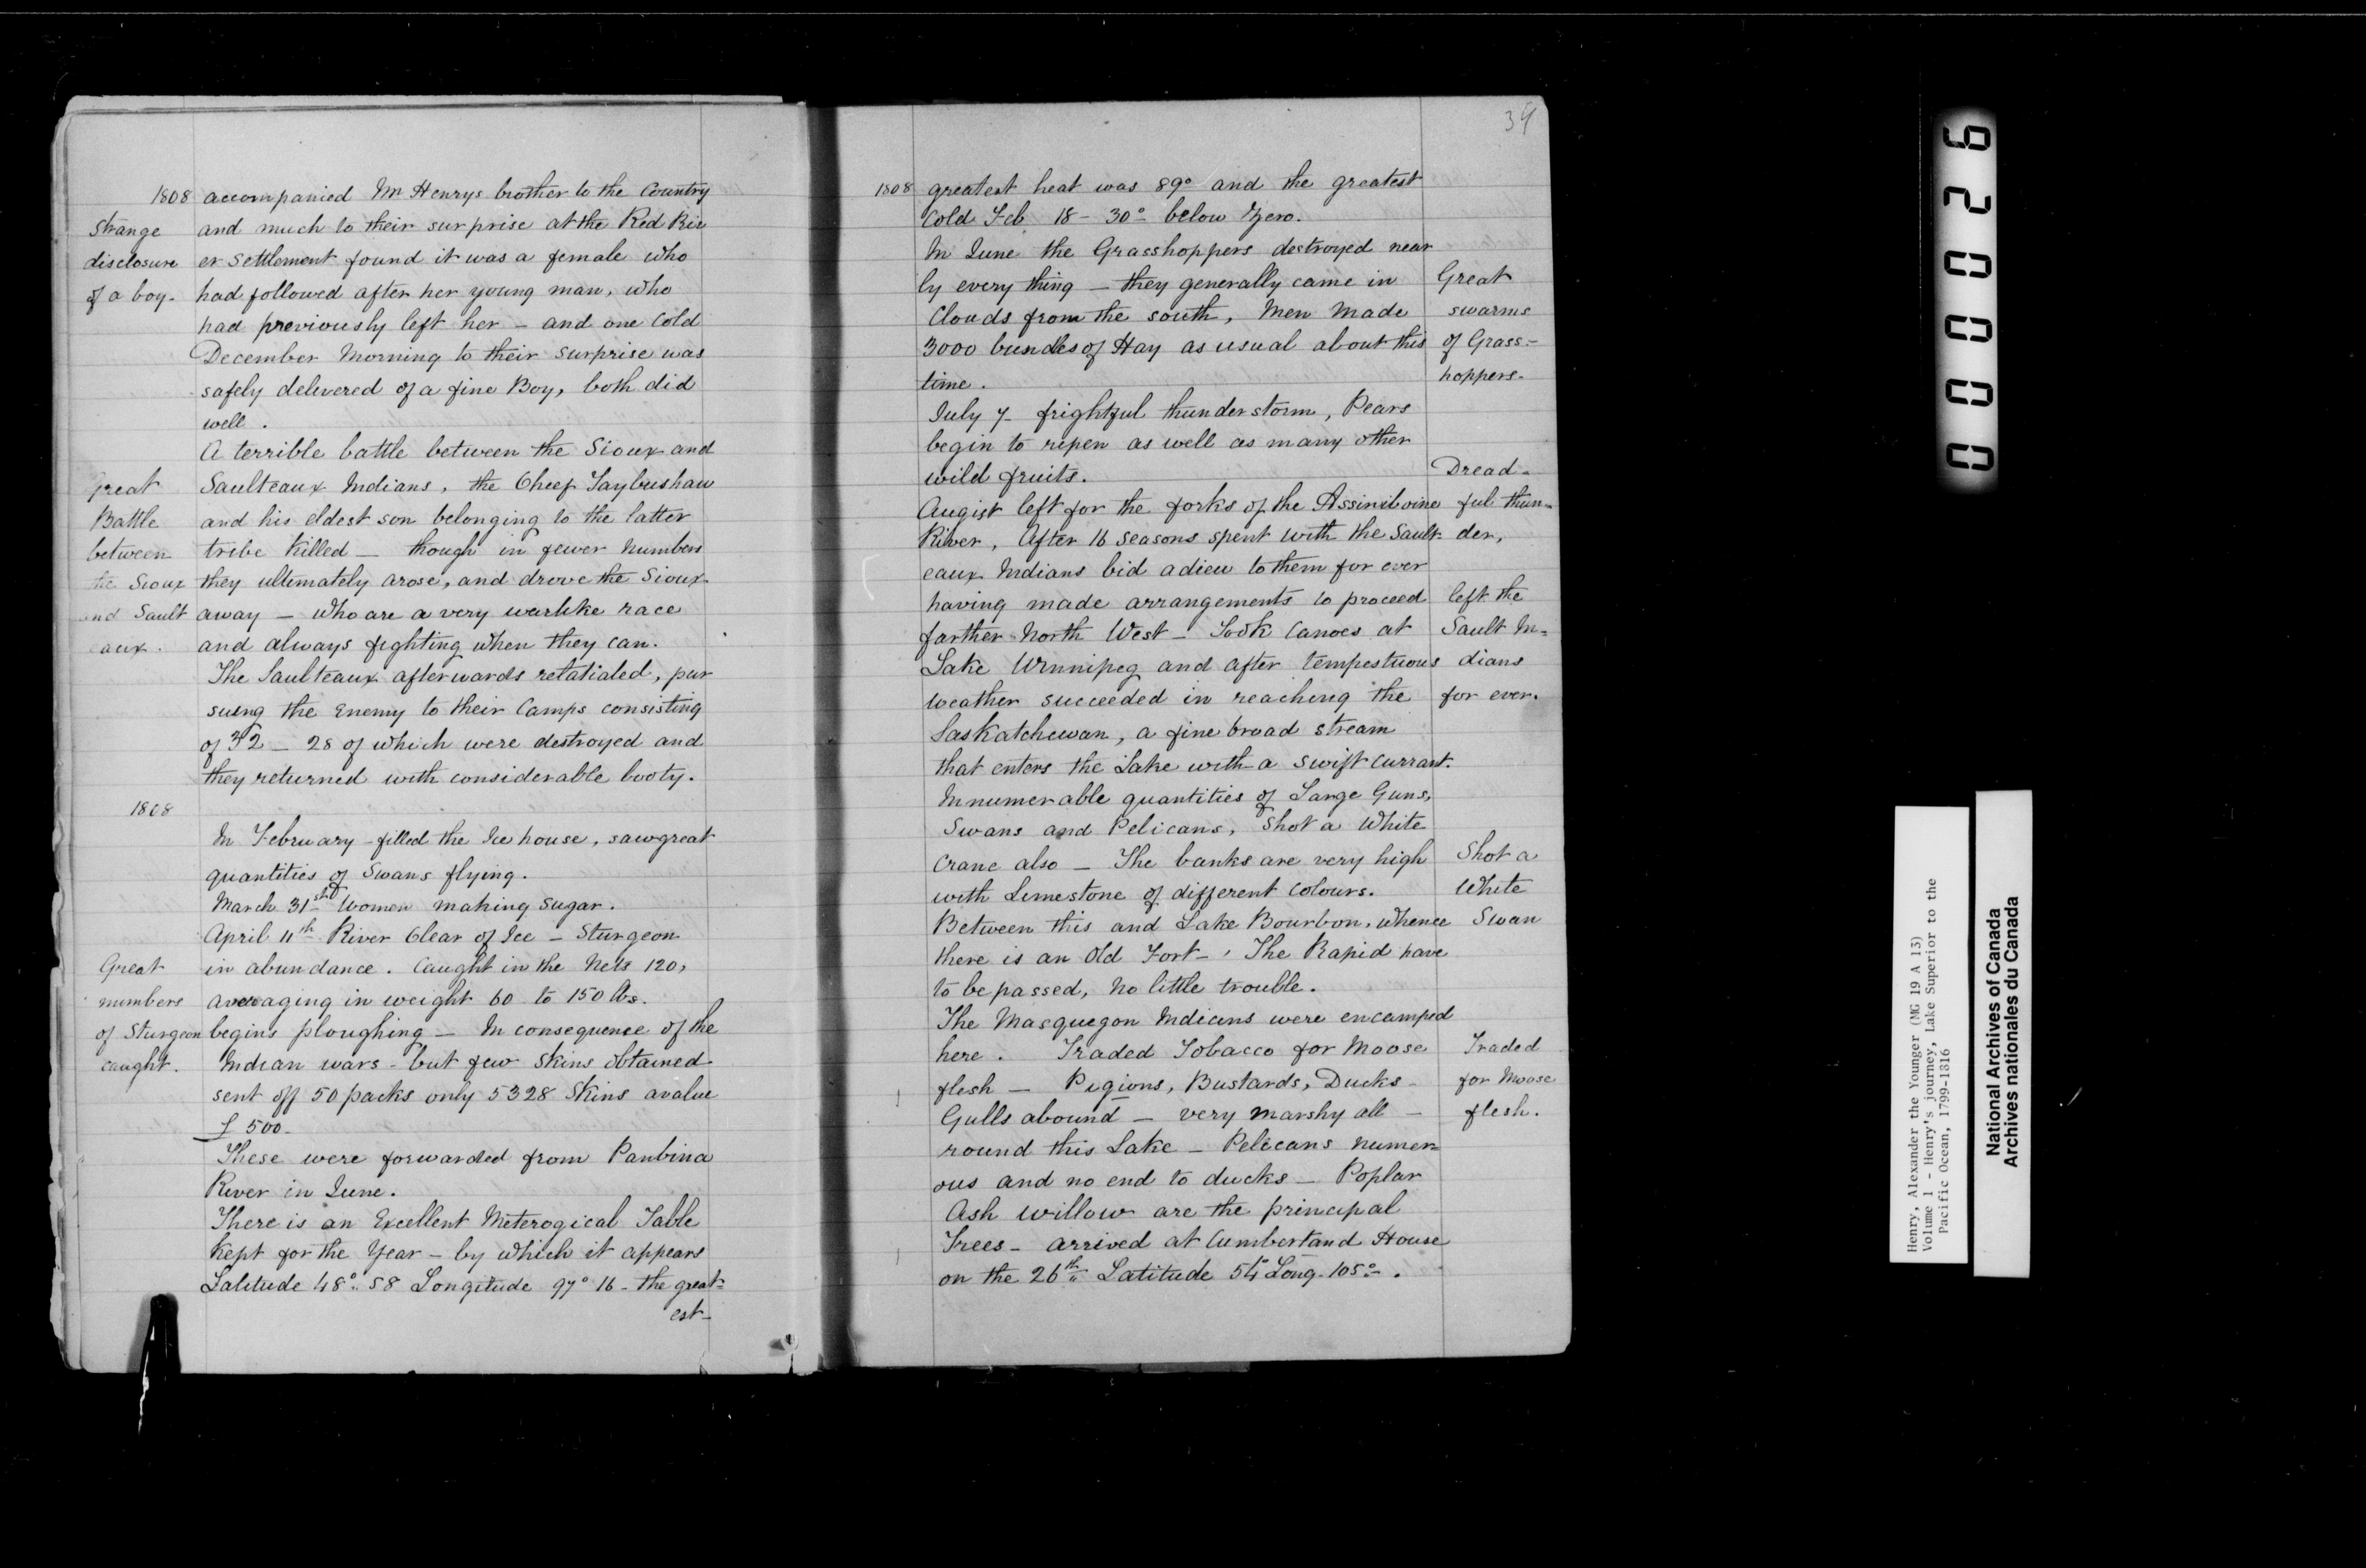 1808 accompanied Mr Henrys brother to the Country
Strange and much to their surprise at the Red Riv
disclosure er Settlement found it was a female who
of a boy- had followed after her young man, who
had previously left her - and one Cold
December Morning to their surprise was
safely delivered of a fine Boy, both did
well.
A terrible battle between the Sioux and
Great Saulteaux Indians, the Cheef Taybushaw
Battle and his eldest son belonging to the latter
between tribe Killed - though in fewer numbers
the Sioux they ultimately arose, and drove the Sioux
and Sault away - who are a very warlike race
eaux. and always fighting when they can.
The Saulteaux afterwards retatialed, pur
sueng the Enemy to their Camps consisting
of 32 - 28 of which were destroyed and
they returned with considerable booty.
1808
In February - filled the Ice house, saw great
quantities of Swans flying.
March 31st Women making sugar.
April 11th River Clear of Ice - Sturgeon
Great in abundance. Caught in the Nets 120,
numbers averaging in weight 60 to 150 lbs.
of Sturgeon begins ploughing - In consequence of the
caught. Indian wars - but few skins obtained
sent off 50 packs only 5328 Skins avalue
£ 500-
These were forwarded from Panbina
River in June.
There is an Excellent Meterogical Table
Kept for the Year - by which it appears
Latitude 48°.. 58 Longitude 97° 16 - the great=
est-
39
1808 greatest heat was 89° and the greatest
Cold Feb. 18 - 30° below Zero.
In June the Grasshoppers destroyed near
ly every thing - they generally came in Great
Clouds from the south, Men made swarms
3000 bundles of Hay as usual about this of Grass=
time. hoppers-
July 7 - frightful thunder storm, Pears
begin to ripen as well as many other
wild fruits. Dread=
Augist left for the forks of the Assiniboine ful thun=
River, After 16 seasons spent with the Sault der,
eaux Indians bid adieu to them for ever
having made arrangements to proceed left the
farther North West - Took Canoes at Sault In=
Lake Winnipeg and after tempestuous dians
weather succeeded in reaching the for ever.
Saskatchewan, a fine broad stream
that enters the Lake with a swift currant.
Innumerable quantities of Large Guns,
Swans and Pelicans, Shot a White
Crane also - The banks are very high Shot a
with Limestone of different Colours. White
Between this and Lake Bourbon, whence Swan
there is an Old Fort - The Rapid have
to be passed, no little trouble.
The Masquegon Indians were encamped
here. Traded Tobacco for Moose Traded
flesh - Pigions, Bustards, Ducks - for Moose
Gulls abound - very marshy all - flesh.
round this Lake - Pelicans numer=
ous and no end to ducks - Poplar
Ash willow are the principal
Trees - arrived at Cumbertand House
on the 26th Latitude 54° Long. 105°-.
000026
Henry, Alexander the Younger (MG 19 A 13)
Volume 1 - Henry's journey, Lake Superior to the
Pacific Ocean, 1799-1816
National Archives of Canada
Archives nationales du Canada